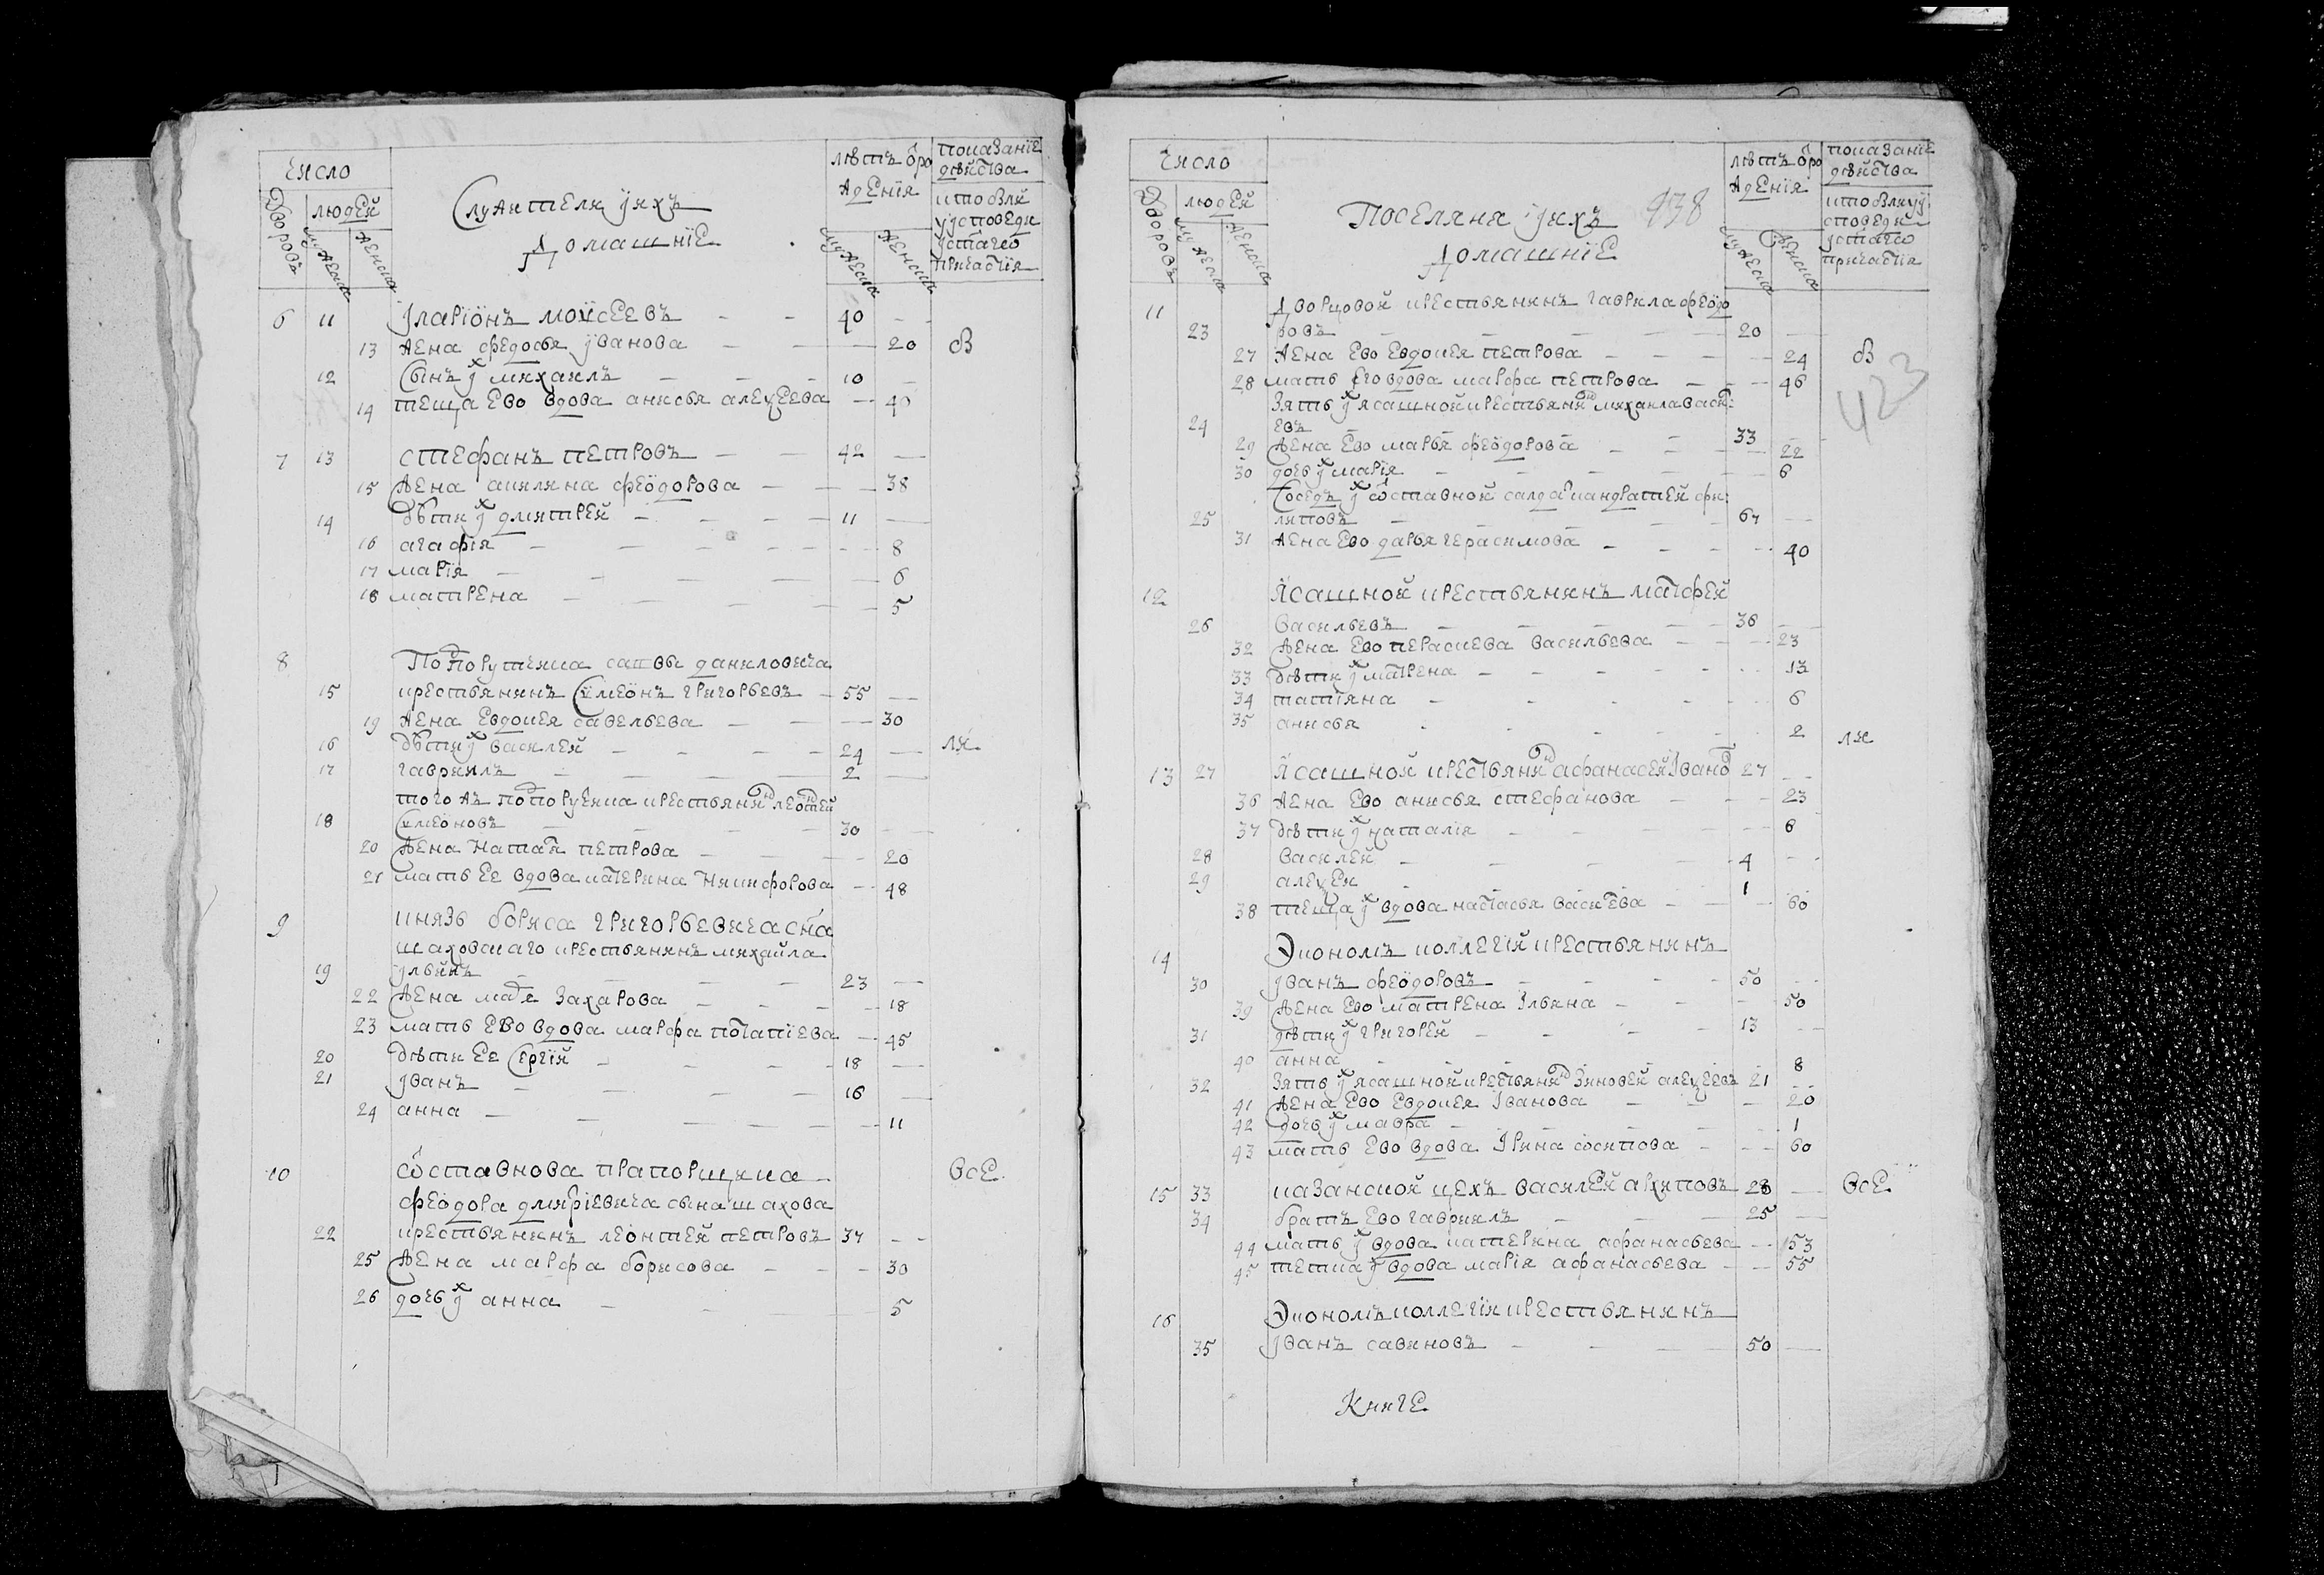 число
дворовъ
людей
мужеска
женска
Служители ихъ
домашнїе
лѣтъ ѿ ро
жденїя
мужеска
женска
показанїе
дѣйства
кто былъ
у исповеди
и стаго
причастїя
6 11 Іларїонъ моисеевъ — — 40 —
13 жена федосья иванова — — — 20 об
12 Сынъ их михаилъ — — — 10 —
14 теща ево вдова анисья алеѯеева — 40
7 13 стефанъ петровъ — — 42 —
15 жена акилина феодорова — — — 38
14 дѣти их дмитрей — — — — 11 —
16 агафїя — — — — 8
17 марїя — — — — 6
18 матрена — — — — 5
8 Подпорутчика саввы даниловича
15 крестьянинъ Симеонъ григорьевъ — 55 —
19 жена Евдокея савельева — — — 30
16 дѣти их василей — — — — 24 — ли
17 гавриилъ — — — — 2 —
того жъ подпоручика крестьянинъ леонтей
18 Симеоновъ — — — — 30 — —
20 жена Наталя петрова — — — 20
21 мать ее вдова катерина Никифорова — 48
9 князь бориса григорьевича сна
шаховскаго крестьянинъ михайла
19 ильинъ — — — — 23 —
22 жена марья Захарова — — — — 18
23 мать ево вдова марфа потапїева — 45
20 дѣти ее Сергїй — — — — 18 —
21 Іванъ — — — — 16 —
24 анна — — — — — 11
10 ѿставнова прапорщика все
феодора дмитрїевича сына шахова
22 крестьянинъ леонтей петровъ 37 — —
25 жена марфа борисова — — — 30
26 дочь их анна — — — 5
число
дворовъ
людей
мужеска
женска
Поселяна ихъ 438
домашнїе
лѣтъ ѿ ро
жденїя
мужеска
женска
показанїе
дѣйства
кто былъ у и
споведи
и стаго
причастїя
11 дворцовой крестьянинъ гаврила феодо
23 ровъ — — — — — 20 —
27 жена ево евдокея петрова — — — 24 об
28 мать его вдова марфа петрова — — 46
423
Зять их ясашной крестьянинъ михаила васил:
24 евъ — — — — 33 —
29 жена ево марья феодорова — — — 22
30 дочь их марїя — — — — 6
Соседъ их ѿставной салдат кандратей фи:
25 липовъ — — — — — 67 —
31 жена ево дарья герасимова — — — 40
12 Ясашной крестьянинъ матфей
26 Васильевъ — — — — 36 —
32 жена ево пераскева васильева — — 23
33 дѣти их матрена — — — — 13
34 татїяна — — — — 6
35 анисья — — — — 2 ли
13 27 Ясашной крестьянинъ афанасей Івано 27 —
36 жена ево анисья стефанова — — — 23
37 дѣти их наталїя — — — — 6
28 василей — — — — 4 —
29 алеѯей — — — — 1 —
38 теща их вдова настасья василева — — 60
14 Экономъ коллегїи крестьянинъ
30 Іванъ феодоровъ — — — — 50 —
39 жена ево матрена Ильина — — — 50
31 дѣти их григорей — — — 13 —
40 анна — — — — 8
32 Зять их ясашной крестьянинъ Зиновей алеѯеевъ 21 —
41 жена ево евдокея Іванова — — — 20
42 дочь их мавра — — — — 1
43 мать ево вдова Ірина осипова — — — 60
15 33 казанской цехъ василей архиповъ 28 — все
34 братъ ево гавриилъ — — 25 —
44 мать их вдова катерина афанасьева — 53
45 тетка их вдова марїя афанасьева — — 55
16 Экономъ коллегїи крестьянинъ
35 Іванъ савиновъ — — — 50 —
Книге